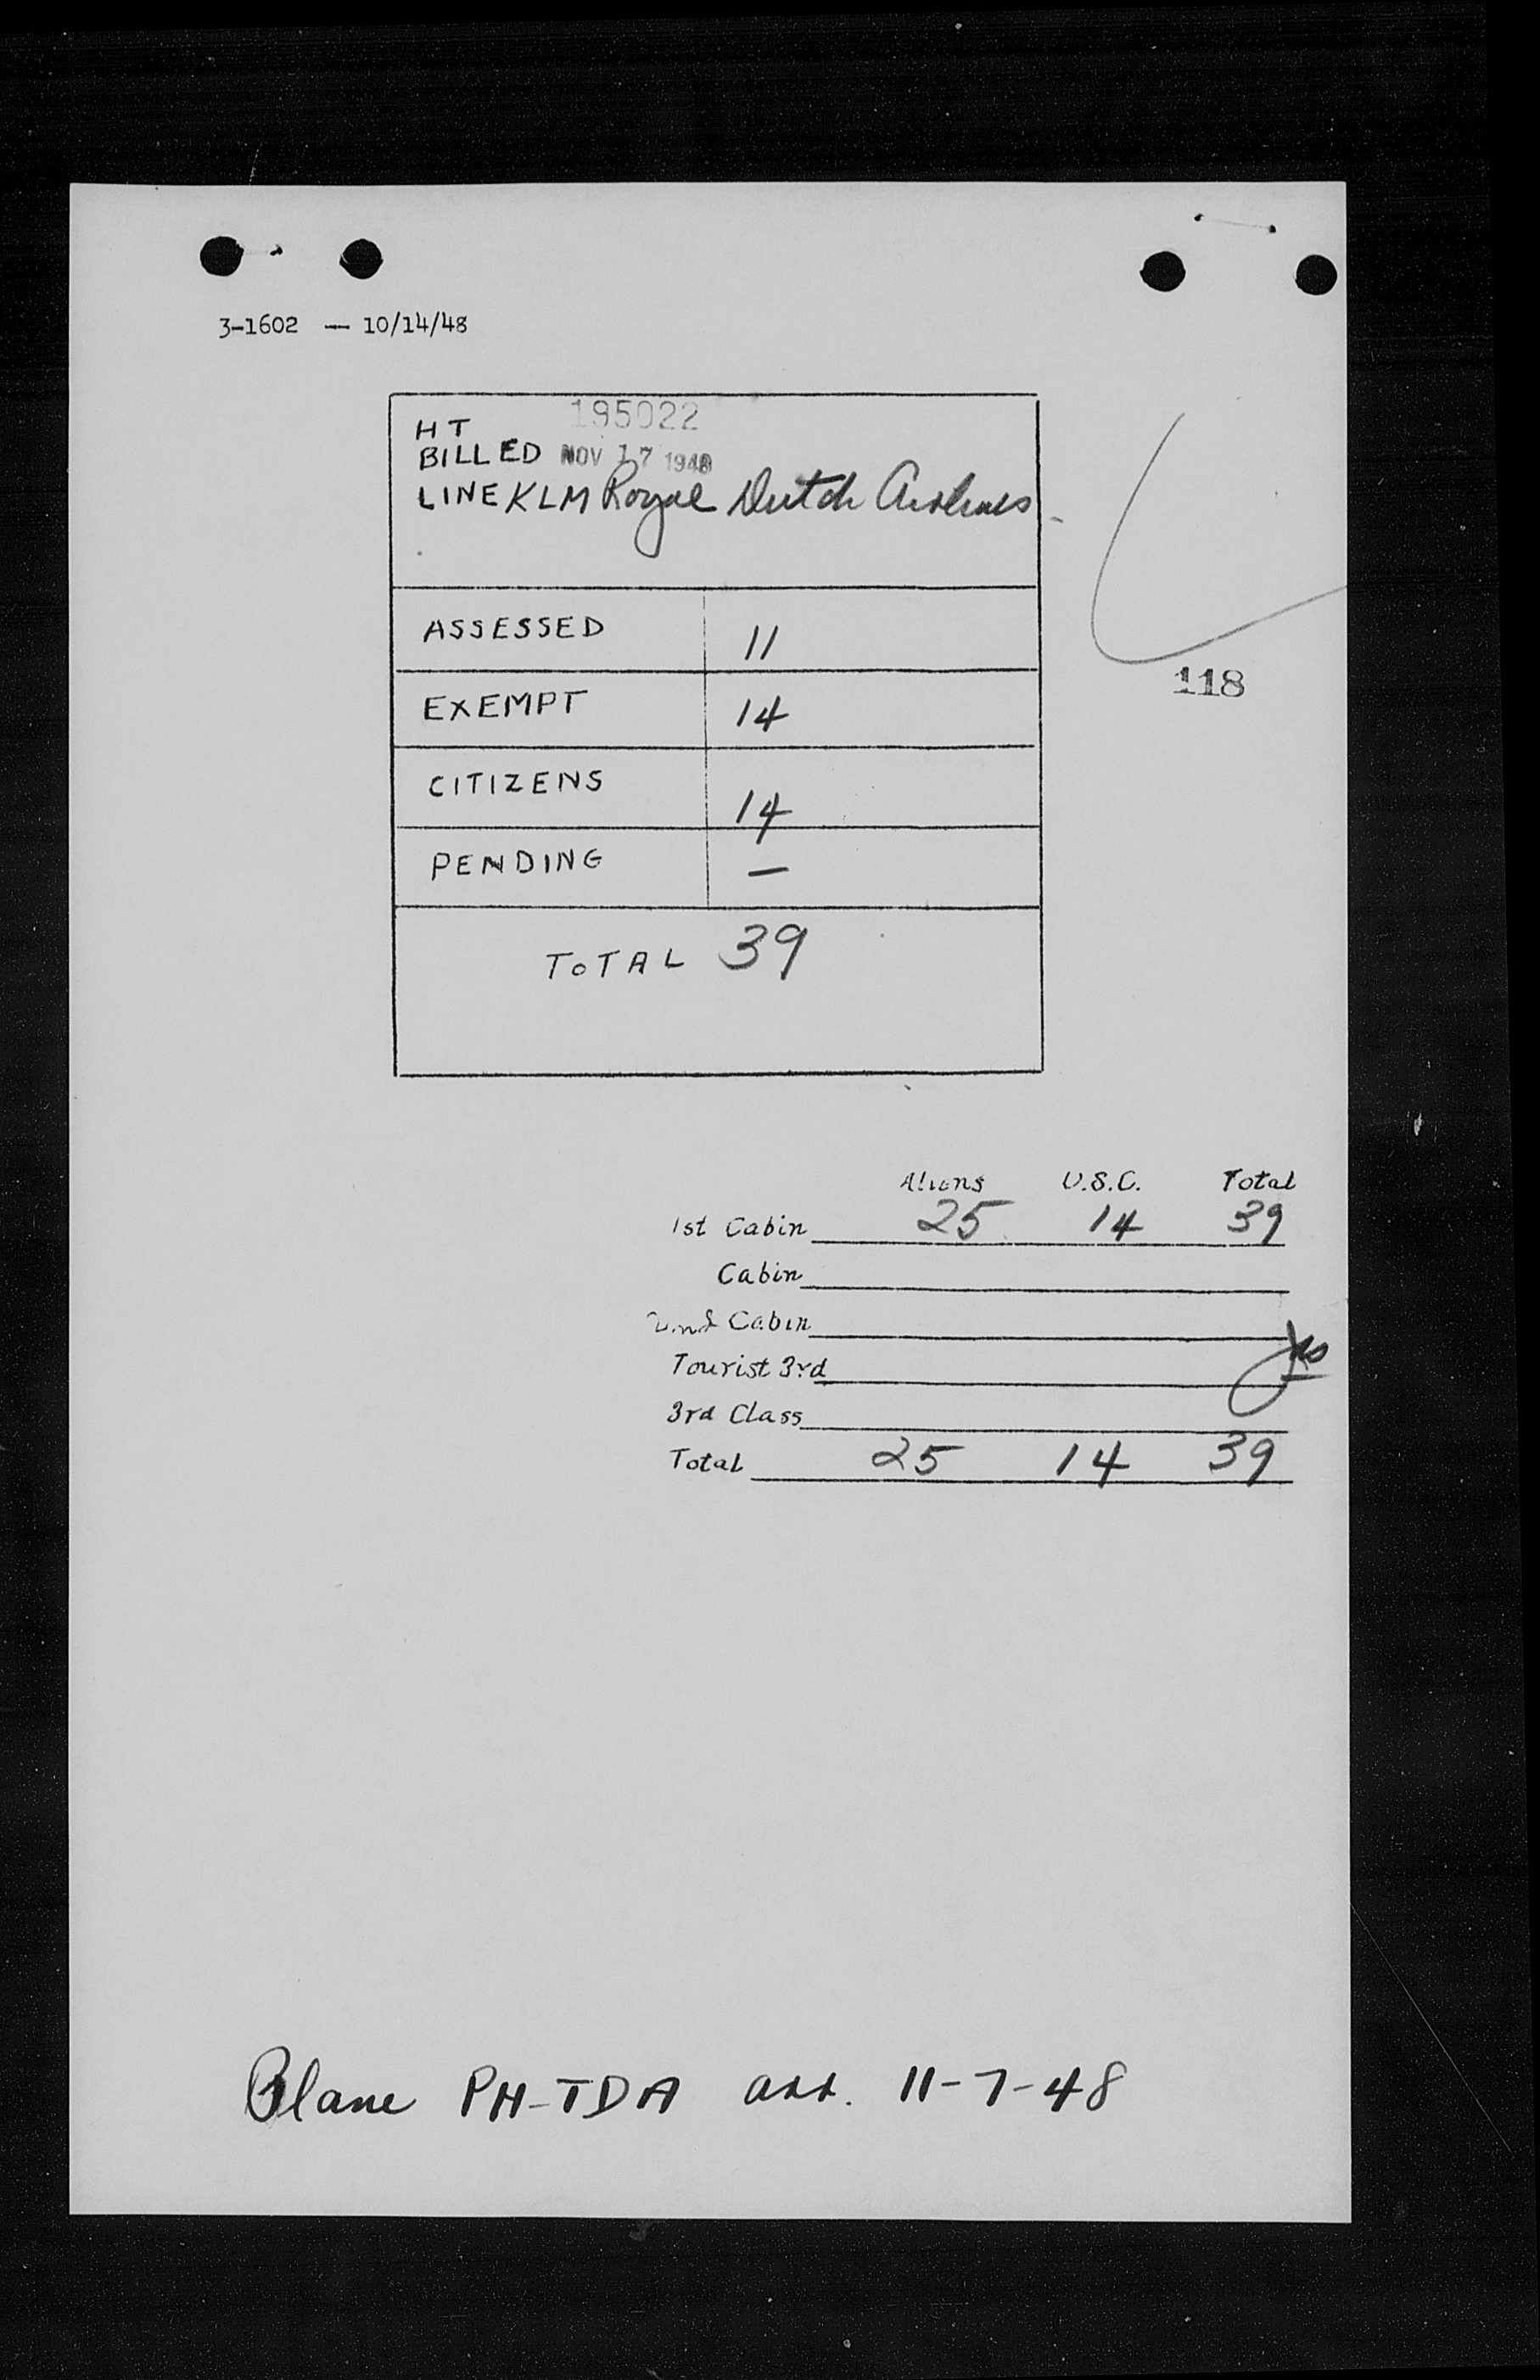 3-1602 — 10/14/48
HT 195022
BILLED NOV 17 1948
LINE KLM Royal Dutch Airlines
118
ASSESSED 11
EXEMPT 14
CITIZENS 14
PENDING —
TOTAL 39
Aliens U.S.C. Total
1st Cabin 25 14 39
Cabin
2nd Cabin
Tourist 3rd
3rd Class
Total 25 14 39
Plane PH-TDA arr. 11-7-48